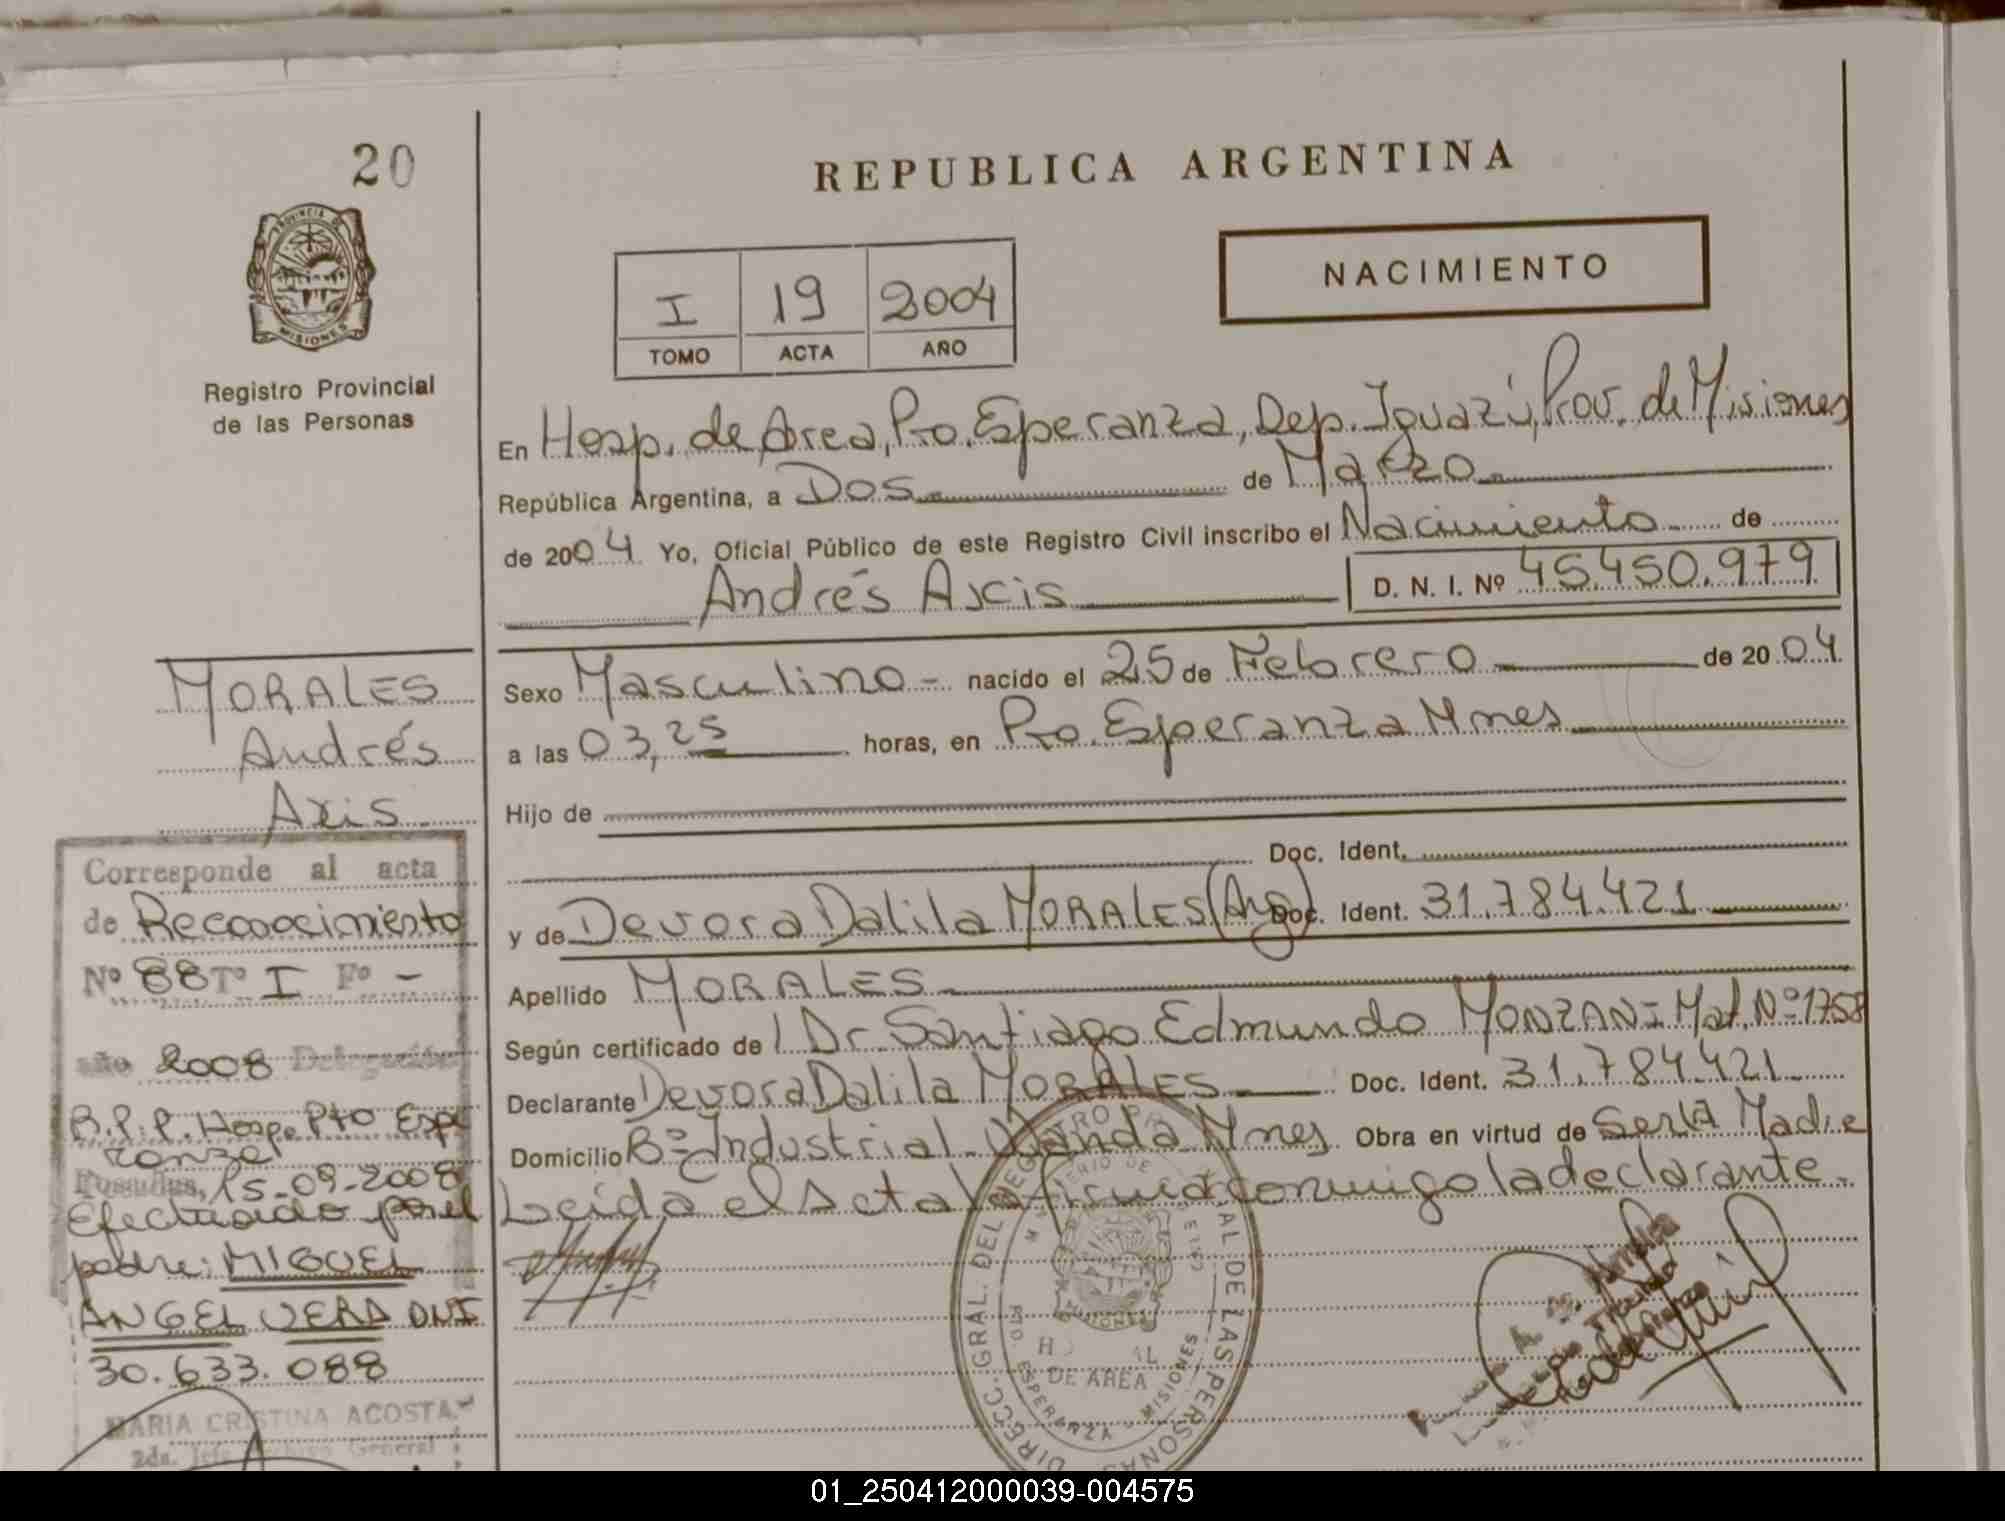 20
PROVINCIA DE
MISIONES
Registro Provincial
de las Personas
REPUBLICA ARGENTINA
I 19 2004
TOMO ACTA AÑO
NACIMIENTO
En Hosp. de Area, Pto. Esperanza, Dep. Iguazú, Prov. de Misiones
República Argentina, a Dos de Marzo
de 2004 Yo, Oficial Público de este Registro Civil inscribo el Nacimiento de
Andrés Axis D. N. I. Nº 45.450.979
Sexo Masculino - nacido el 25 de Febrero de 2004
a las 03,25 horas, en Pto. Esperanza Mnes
Hijo de
Doc. Ident.
y de Devora Dalila MORALES (Arg) Doc. Ident. 31.784.421
Apellido MORALES
Según certificado de l Dr. Santiago Edmundo MONZANI Mat. Nº 1758
Declarante Devora Dalila MORALES Doc. Ident. 31.784.421
Domicilio Bº Industrial Wanda Mnes. Obra en virtud de Ser la Madre
Leída el Acta la firma conmigo la declarante.
MORALES
Andrés
Axis
Corresponde al acta
de Reconocimiento
Nº 88 Tº I Fº -
año 2008 Delegación
R.P.P. Hosp. Pto Espe
ranza
Posadas, 15-09-2008
Efectuado por el
padre: MIGUEL
ANGEL VERA DNI
30.633.088
MARIA CRISTINA ACOSTA
2da. Jefe Archivo General
DIRECC. GRAL. DEL REGISTRO PROVINCIAL DE LAS PERSONAS
MINISTERIO DE
DE AREA
PTO. ESPERANZA - MISIONES
01_250412000039-004575